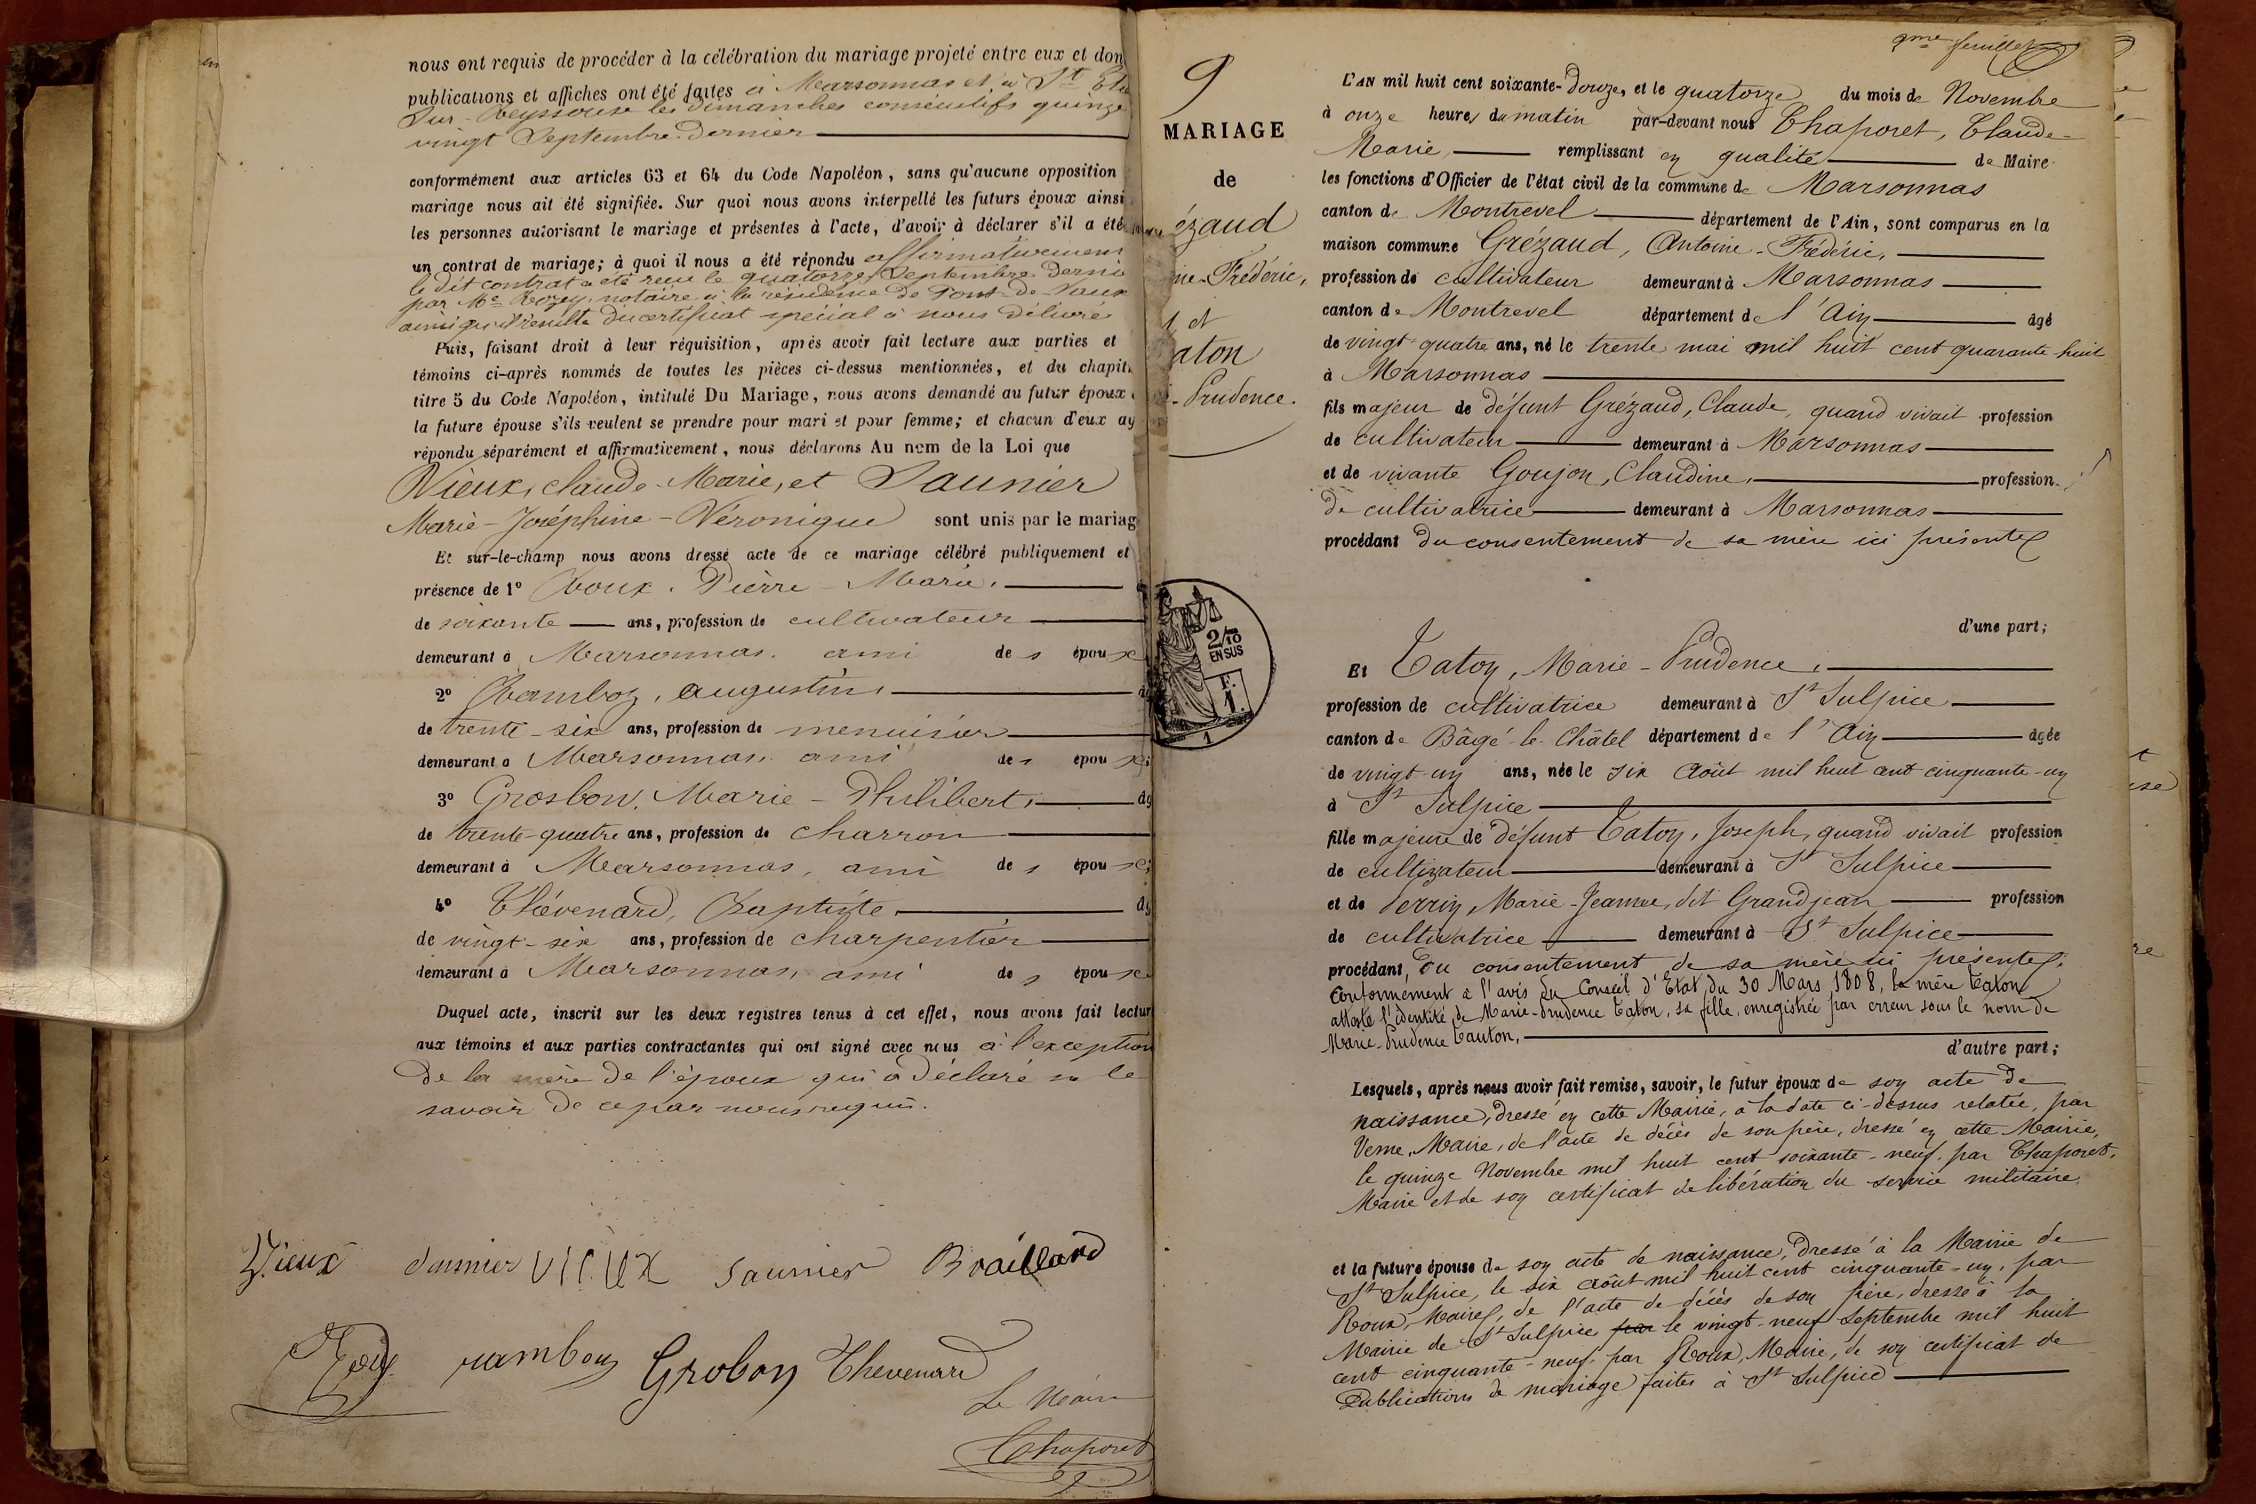 nous ont requis de procéder à la célébration du mariage projeté entre eux et don
publications et affiches ont été faites à Marsonnas et à St Eti
sur-Reyssouse les dimanches consécutifs quinze
vingt Septembre dernier
conformément aux articles 63 et 64 du Code Napoléon, sans qu'aucune opposition
mariage nous ait été signifiée. Sur quoi nous avons interpellé les futurs époux ainsi
les personnes autorisant le mariage et présentes à l'acte, d'avoir à déclarer s'il a été
un contrat de mariage; à quoi il nous a été répondu affirmativement
le dit contrat a été reçu le quatorze Septembre derni
par Me notaire à la résidence de Pont-de-Vaux
ainsi qu'il résulte du certificat spécial à nous délivré
Puis, faisant droit à leur réquisition, après avoir fait lecture aux parties et
témoins ci-après nommés de toutes les pièces ci-dessus mentionnées, et du chapit
titre 5 du Code Napoléon, intitulé Du Mariage, nous avons demandé au futur époux
la future épouse s'ils veulent se prendre pour mari et pour femme; et chacun d'eux ay
répondu séparément et affirmativement, nous déclarons Au nom de la Loi que
Vieux, Claude-Marie, et Saunier
Marie-Joséphine-Véronique sont unis par le mariag
Et sur-le-champ nous avons dressé acte de ce mariage célébré publiquement et
présence de 1° Roux, Pierre-Marie,
de soixante ans, profession de cultivateur
demeurant à Marsonnas, ami des époux
2° Ramboz, Augustin,
de trente-six ans, profession de menuisier
demeurant à Marsonnas, ami des époux;
3° Grosbon, Marie-Philibert, âg
de trente-quatre ans, profession de charron
demeurant à Marsonnas, ami des époux;
4° Thévenard, Baptiste âg
de vingt-six ans, profession de charpentier
demeurant à Marsonnas, ami des époux
Duquel acte, inscrit sur les deux registres tenus à cet effet, nous avons fait lectur
aux témoins et aux parties contractantes qui ont signé avec nous à l'exception
de la mère de l'époux qui a déclaré ne le
savoir de ce par nous requis.
Vieux Saunier VIEUX Saunier Braillard
Roux rambouz Grobon Thevenard
Le Maire
Chaporet
9me feuillet
9
MARIAGE
de
ézaud
ine-Frédéric,
et
aton
-Prudence.
2/10
EN SUS
F.
1.
1
L'AN mil huit cent soixante-douze, et le quatorze du mois de Novembre
à onze heures du matin par-devant nous Chaporet, Claude-
Marie, remplissant en qualité de Maire
les fonctions d'Officier de l'état civil de la commune de Marsonnas
canton de Montrevel département de l'Ain, sont comparus en la
maison commune Grézaud, Antoine-Frédéric,
profession de cultivateur demeurant à Marsonnas
canton de Montrevel département de l'Ain âgé
de vingt-quatre ans, né le trente mai mil huit cent quarante-huit
à Marsonnas
fils majeur de défunt Grézaud, Claude, quand vivait profession
de cultivateur demeurant à Marsonnas
et de vivante Goujon, Claudine, profession
de cultivatrice demeurant à Marsonnas
procédant du consentement de sa mère ici présente
d'une part;
Et Taton, Marie-Prudence,
profession de cultivatrice demeurant à St Sulpice
canton de Bâgé-le-Châtel département de l'Ain âgée
de vingt-un ans, née le six Août mil huit cent cinquante-un
à St Sulpice
fille majeure de défunt Taton, Joseph, quand vivait profession
de cultivateur demeurant à St Sulpice
et de Perrin, Marie-Jeanne, dit Grandjean profession
de cultivatrice demeurant à St Sulpice
procédant, du consentement de sa mère ici présente,
Conformément à l'avis du Conseil d'Etat du 30 Mars 1808, la mère Taton
atteste l'identité de Marie-Prudence Taton, sa fille, enregistrée par erreur sous le nom de
Marie-Prudence Tauton,
d'autre part;
Lesquels, après nous avoir fait remise, savoir, le futur époux de son acte de
naissance, dressé en cette Mairie, à la date ci-dessus relatée, par
Verne, Maire, de l'acte de décès de son père, dressé en cette Mairie,
le quinze Novembre mil huit cent soixante-neuf par Chaporet,
Maire et de son certificat de libération du service militaire
et la future épouse de son acte de naissance, dressé à la Mairie de
St Sulpice, le six Août mil huit cent cinquante-un, par
Roux, Maire, de l'acte de décès de son père, dressé à la
Mairie de St Sulpice par le vingt-neuf Septembre mil huit
cent cinquante-neuf par Roux, Maire, de son certificat de
Publications de mariage faites à St Sulpice